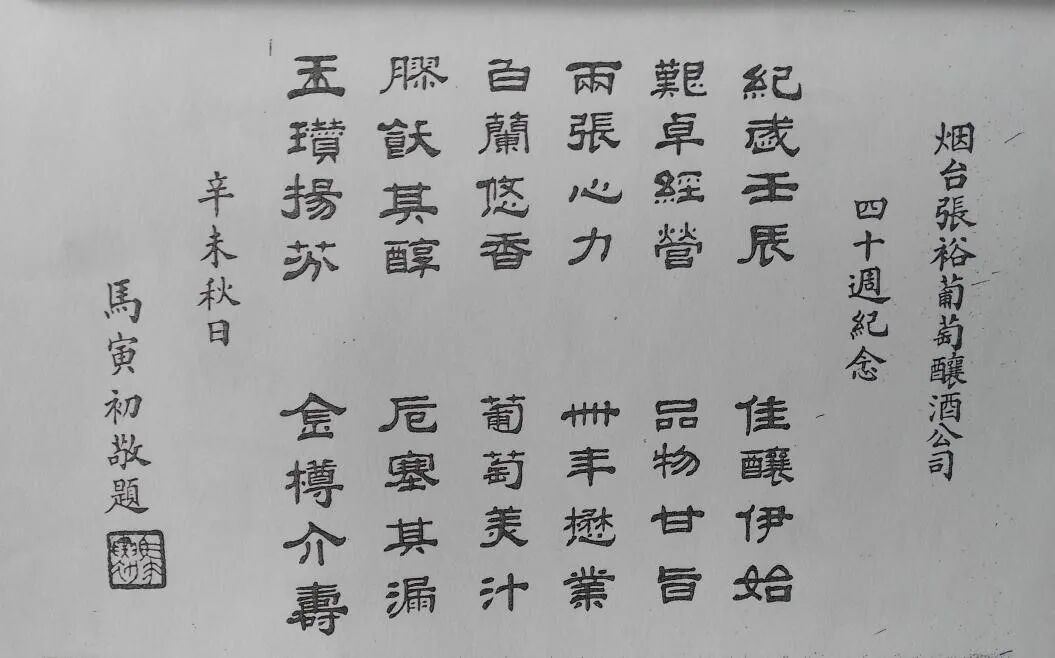 烟台張裕葡萄釀酒公司
四十週紀念
紀歲壬辰 佳釀伊始
艱卓經營 品物甘旨
兩張心力 卌年懋業
白蘭悠香 葡萄美汁
膠飫其醇 卮塞其漏
玉瓚揚芬 金樽介壽
辛未秋日
馬寅初敬題